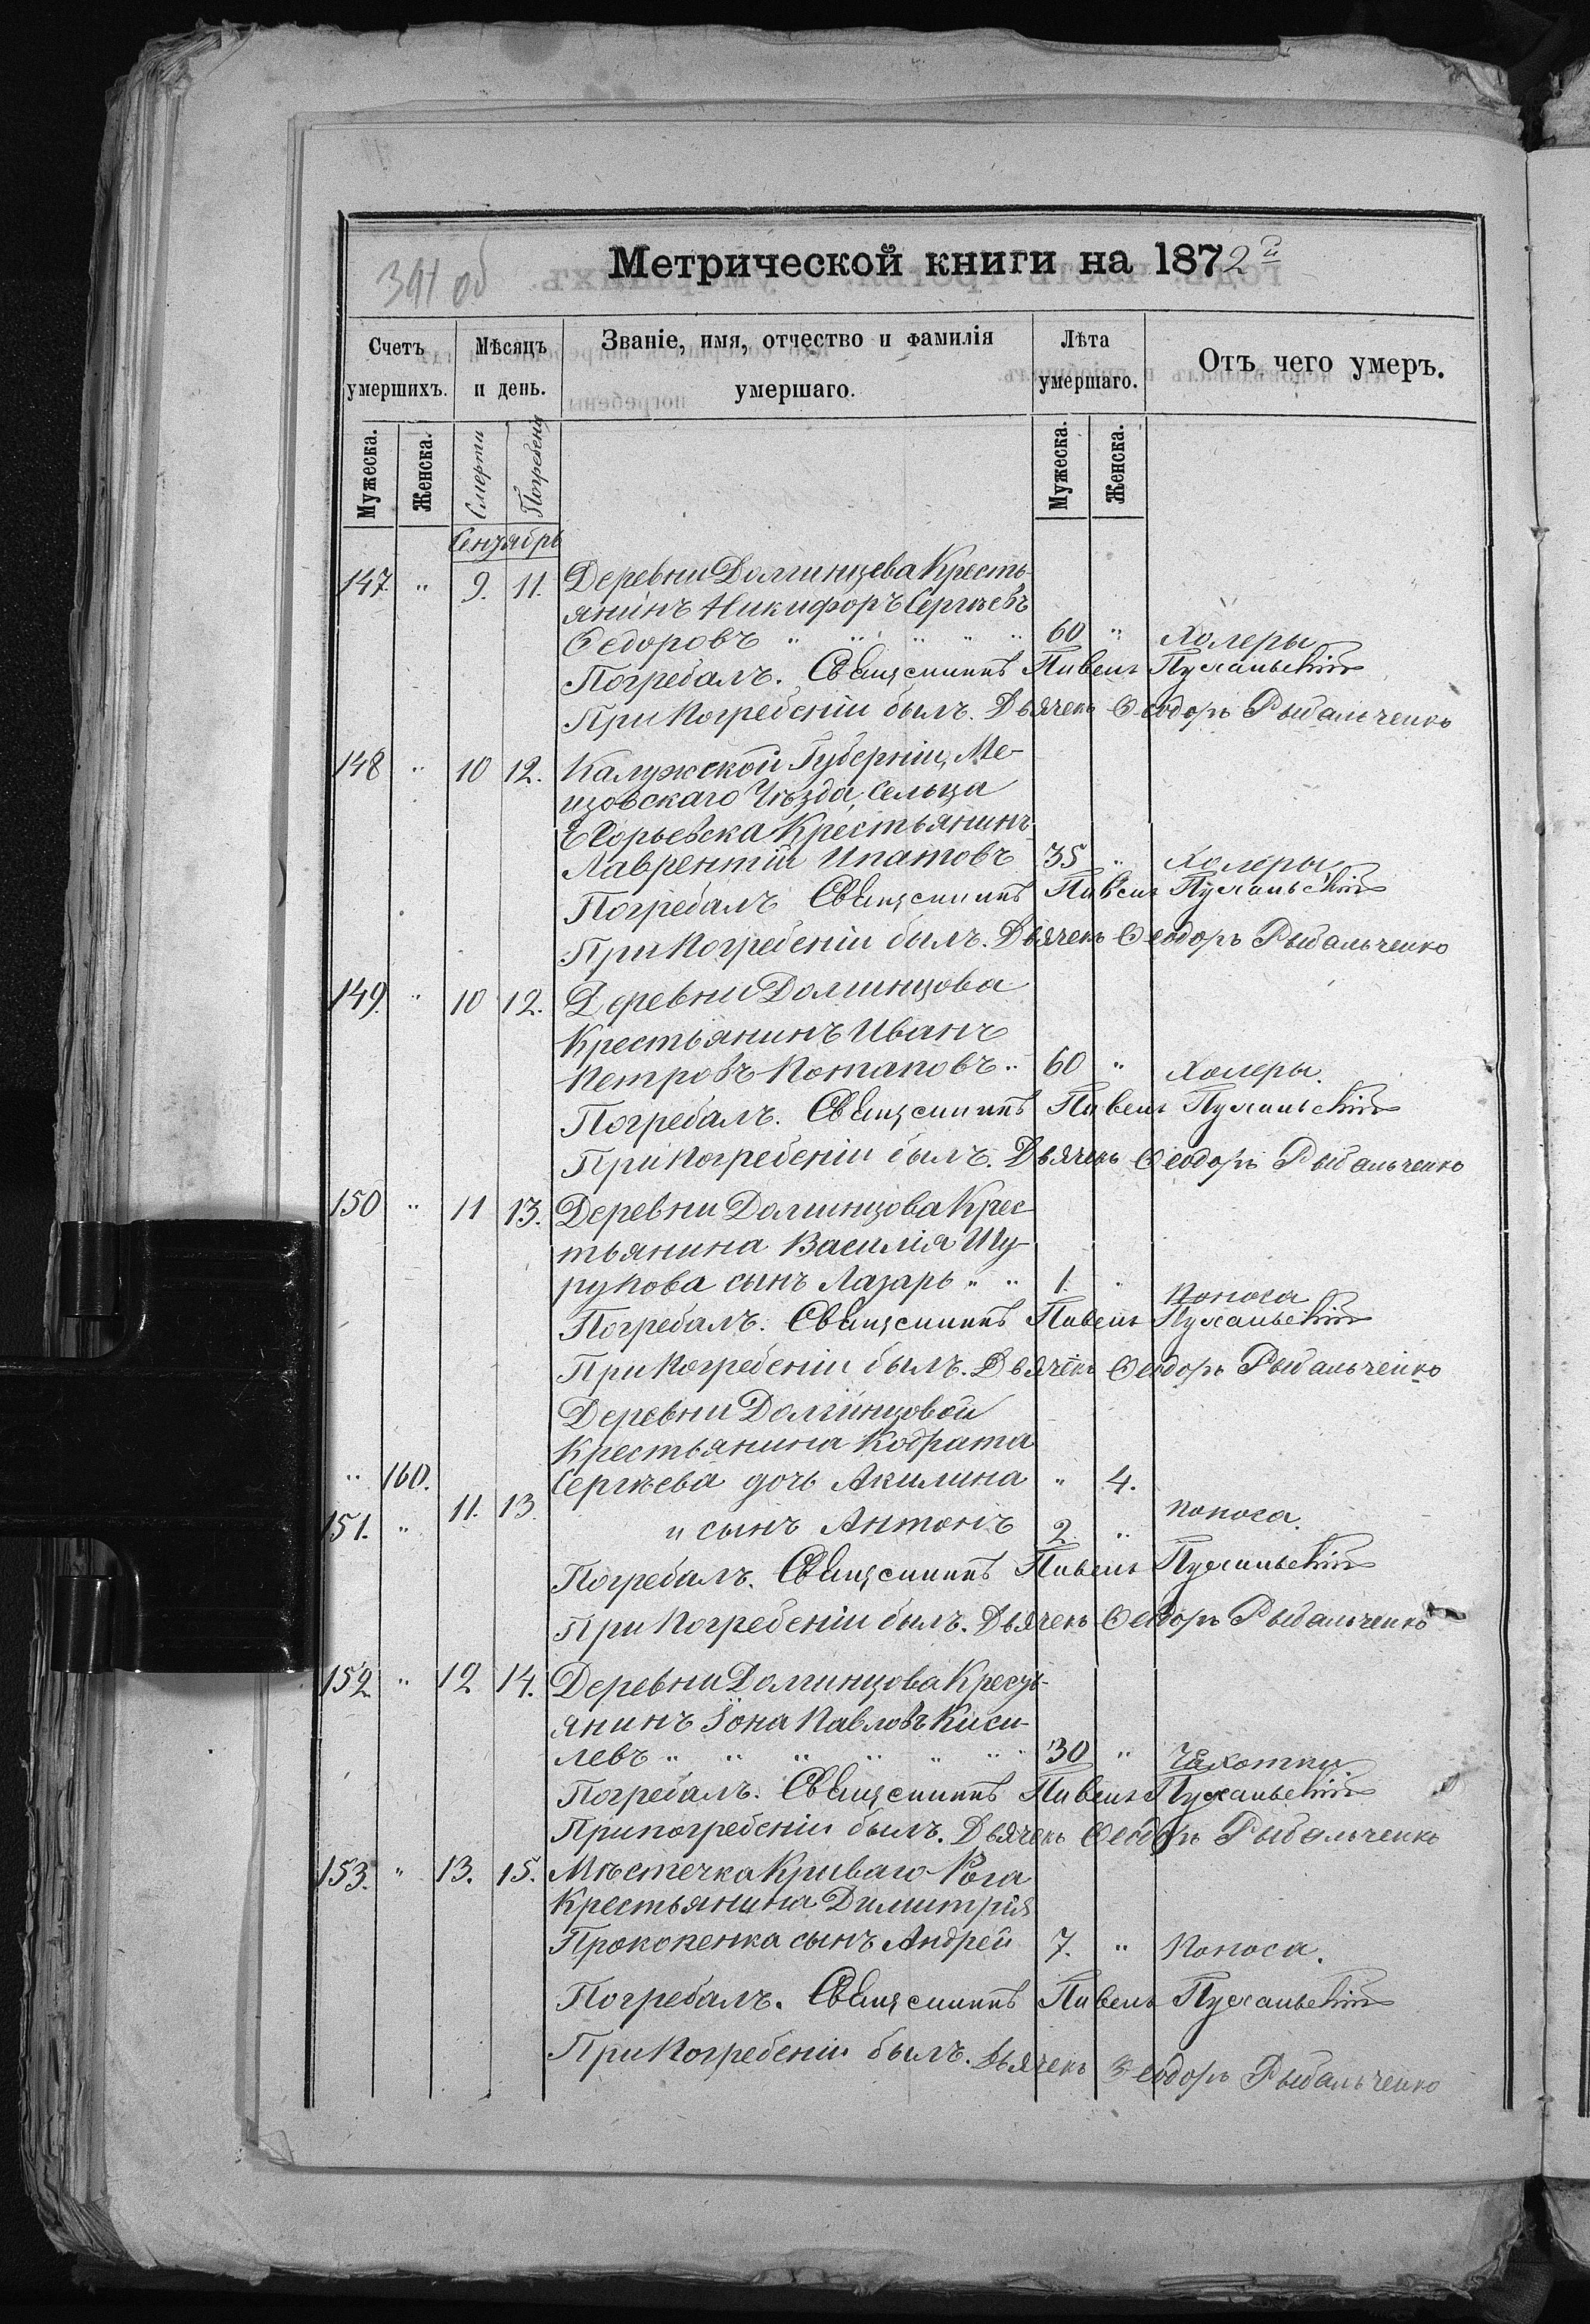 391 об
Метрической книги на 1872й
Счетъ умершихъ.
Мѣсяцъ и день.
Званіе, имя, отчество и фамилія умершаго.
Лѣта умершаго.
Отъ чего умеръ.
Мужеска. Женска. Смерти Погребенія Мужеска. Женска.
Сентябрь
147. " 9. 11. Деревни Долгинцева Кресть-
янинъ Никифоръ Сергѣевъ
Ѳедоровъ " " " " " 60 " Холеры
Погребалъ. Священникъ Павелъ
При погребеніи былъ. Дьячекъ Ѳеодоръ Рыбальченко
148 " 10 12. Калужской Губерніи, Ме-
щовскаго Уѣзда, сельца
Крестьянинъ
Лаврентій Ипатовъ 35 " Холеры
Погребалъ Священникъ Павелъ
При погребеніи былъ. Дьячекъ Ѳеодоръ Рыбальченко
149. " 10 12. Деревни Долгинцова
Крестьянинъ Иванъ
Петровъ Потаповъ " 60 " Холеры.
Погребалъ. Священникъ Павелъ
При погребеніи былъ. Дьячекъ Ѳеодоръ Рыбальченко
150 " 11 13. Деревни Долгинцова Крес-
тьянина Василія Шу-
рупова сынъ Лазарь " " 1. " Поноса
Погребалъ. Священникъ Павелъ
При погребеніи былъ. Дьячекъ Ѳеодоръ Рыбальченко
Деревни Долгинцовой
Крестьянина Кодрата
" 160. Сергѣева дочь Акилина " 4.
151. " 11. 13. и сынъ Антонъ 2 " Поноса.
Погребалъ. Священникъ Павелъ
При погребеніи былъ. Дьячекъ Ѳеодоръ Рыбальченко
152 " 12 14. Деревни Долгинцова Кресть-
янинъ Іона Павловъ Киси-
левъ " " " " " " 30 " Чахотки.
Погребалъ. Священникъ Павелъ
При погребеніи былъ. Дьячекъ Ѳеодоръ Рыбальченко
153. " 13. 15. Мѣстечка Криваго-Рога
Крестьянина Димитрія
Прокопенка сынъ Андрей 7. " Поноса.
Погребалъ. Священникъ Павелъ
При погребеніи былъ. Дьячекъ Ѳеодоръ Рыбальченко